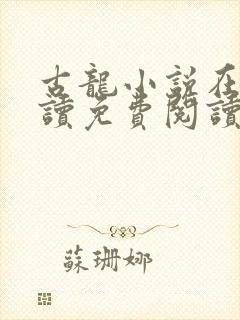 古龍小說在
讀免費閱讀
蘇珊娜